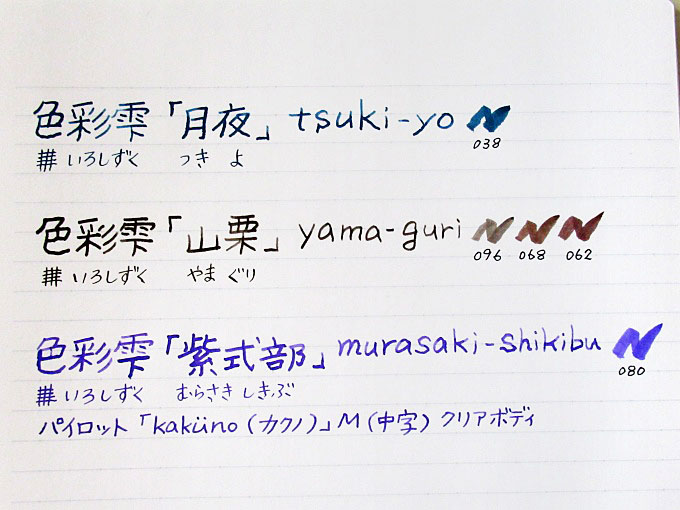 色彩雫「月夜」 tsuki-yo
038
#いろしずく つき よ
色彩雫「山栗」 yama-guri
096 068 062
#いろしずく やま ぐり
色彩雫「紫式部」 murasaki-shikibu
080
#いろしずく むらさき しきぶ
パイロット「kaküno (カクノ)」M (中字) クリアボディ